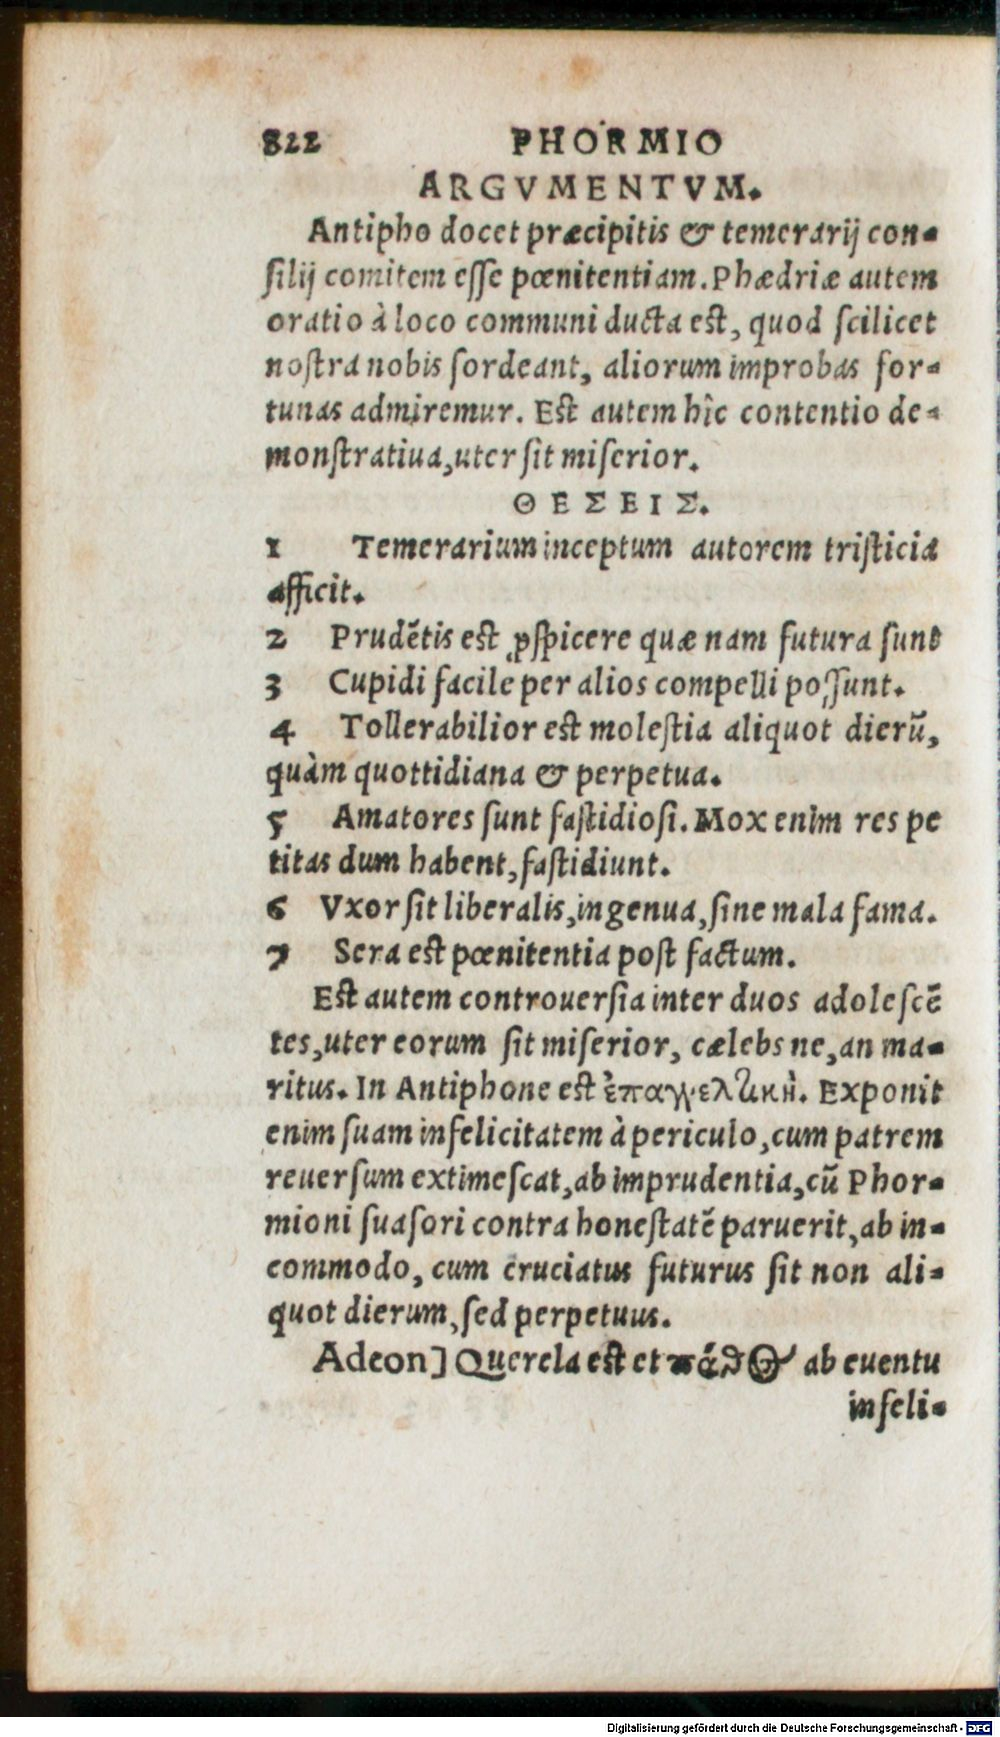 822 PHORMIO
ARGVMENTVM.
Antipho docet præcipitis & temerarij con-
ſilij comitem eſſe pœnitentiam. Phædriæ autem
oratio à loco communi ducta est, quod ſcilicet
noſtra nobis ſordeant, aliorum improbas for-
tunas admiremur. Est autem hîc contentio de-
monſtratiua, uter ſit miſerior.
ΘΕΣΕΙΣ.
1 Temerarium inceptum autorem triſticia
afficit.
2 Prudētis est ꝓſpicere quæ nam futura ſunt
3 Cupidi facile per alios compelli poſſunt.
4 Tollerabilior est moleſtia aliquot dierū,
quàm quottidiana & perpetua.
5 Amatores ſunt faſtidioſi. Mox enim res pe
titas dum habent, faſtidiunt.
6 Vxor ſit liberalis, ingenua, ſine mala fama.
7 Sera est pœnitentia poſt factum.
Est autem controuerſia inter duos adoleſcē
tes, uter eorum ſit miſerior, cælebs ne, an ma-
ritus. In Antiphone est ἐπαγγελτικὴ. Exponit
enim ſuam infelicitatem à periculo, cum patrem
reuerſum extimeſcat, ab imprudentia, cū Phor-
mioni ſuaſori contra honeſtatē paruerit, ab in-
commodo, cum cruciatus futurus ſit non ali-
quot dierum, ſed perpetuus.
Adeon] Querela est et πάθος ab euentu
infeli-
Digitalisierung gefördert durch die Deutsche Forschungsgemeinschaft - DFG